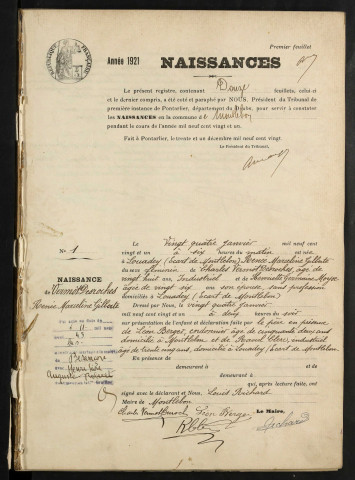 Premier feuillet
Année 1921 NAISSANCES
Le présent registre, contenant Douze feuillets, celui-ci
et le dernier compris, a été coté et paraphé par NOUS, Président du Tribunal de
première instance de Pontarlier, département du Doubs, pour servir à constater
les NAISSANCES en la commune d e Montlebon
pendant le cours de l'année mil neuf cent vingt et un.
Fait à Pontarlier, le trente et un décembre mil neuf cent vingt
Le Président du Tribunal,
N° 1
NAISSANCE
de Vermot Desroches
Renée Marceline Gilberte
Le Vingt quatre Janvier mil neuf cent
vingt et un à six heures du matin est née
à Louadey (Ecart de Montlebon) Renée Marceline Gilberte
du sexe féminin de Charles Vermot Desroches, âgé de
vingt huit ans Industriel et de Henriette Germaine
âgée de vingt six ans son épouse, sans profession
domiciliés à Louadey (Ecart de Montlebon)
Dressé par Nous, le vingt quatre Janvier
mil neuf cent vingt et un à cinq heures du soir
sur présentation de l'enfant et déclaration faite par le père en présence
de Léon Berger, cordonnier âgé de cinquante deux ans
domicilié à Montlebon et de
âgé de trente cinq ans, domicilié à Louadey (Ecart de Montlebon)
demeurant à et de
demeurant à qui, après lecture faite, ont
signé avec le déclarant et Nous, Louis
Maire de Montlebon
Le Maire,
Charles Vermot Desroches Léon Berger